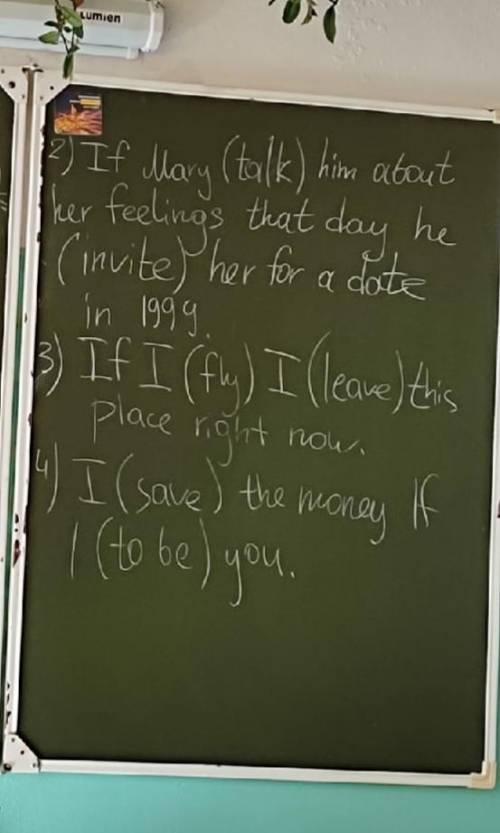 lumien
2) If Mary (talk) him about
her feelings that day he
(invite) her for a date
in 1999.
3) If I (fly) I (leave) this
place right now.
4) I (save) the money If
I (to be) you.